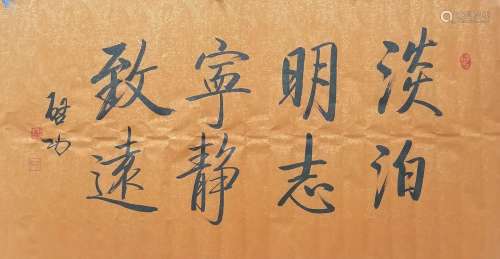 淡泊
明志
寧静
致遠
啟功